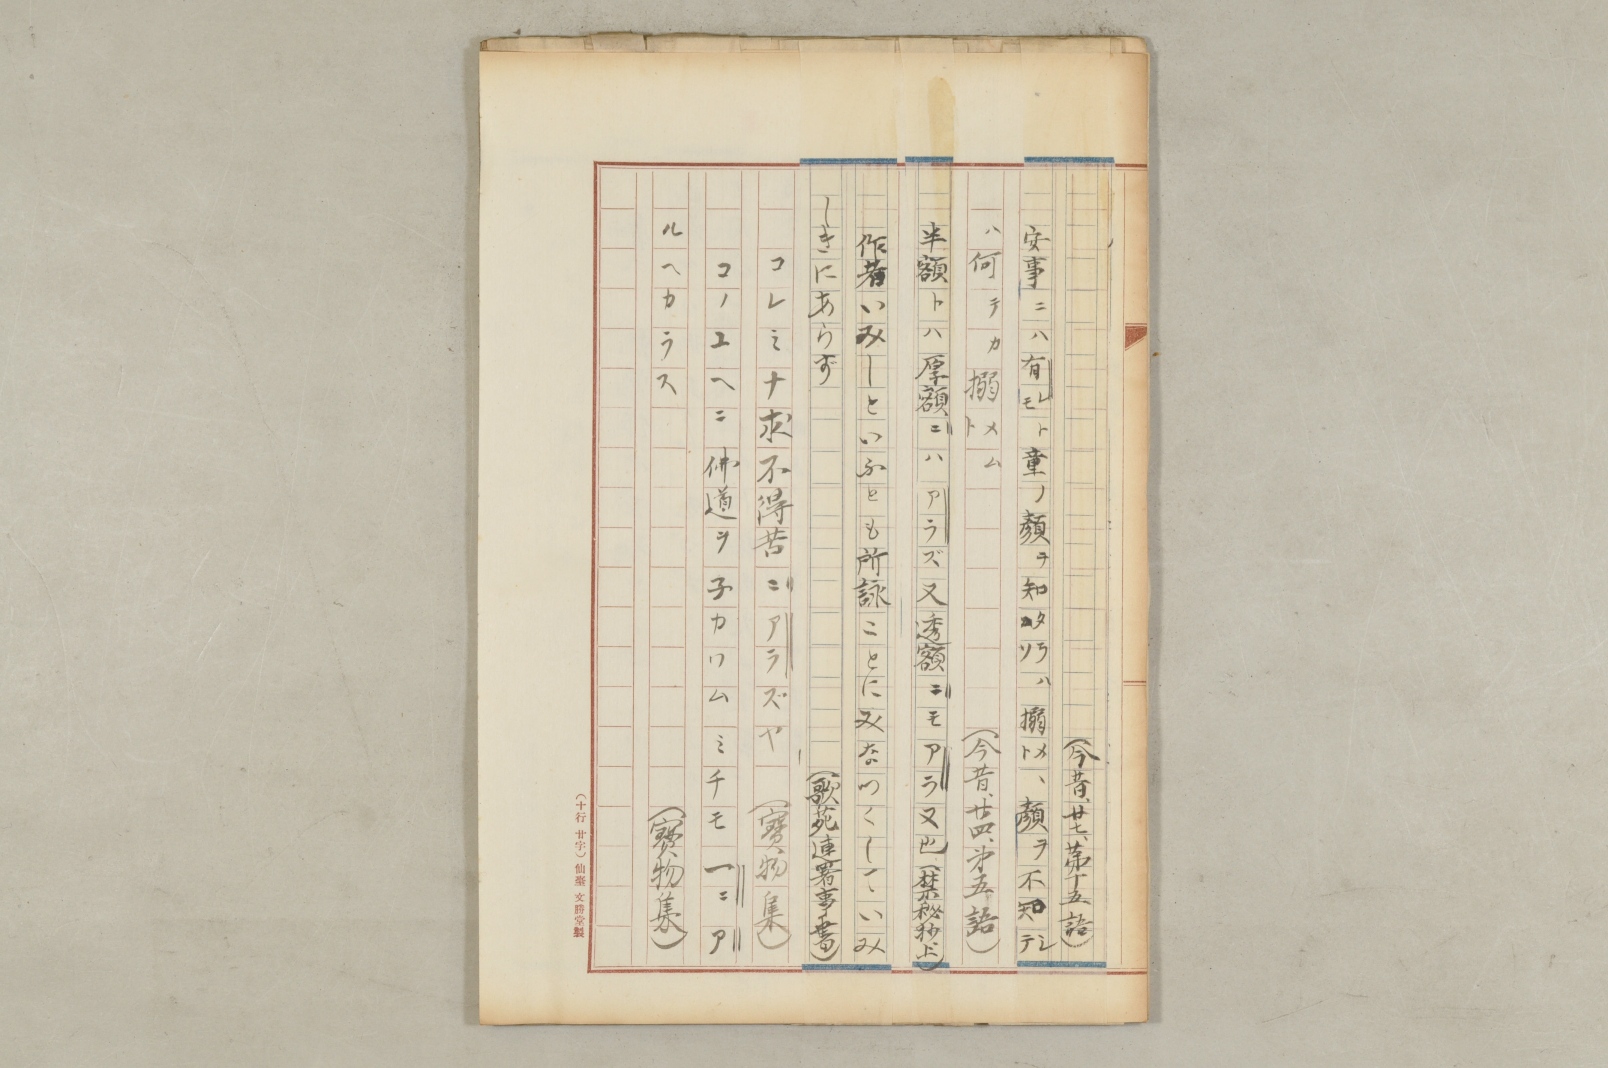 (今昔、廿七、第十五語)
安事ニハ有レモト童ノ顔ヲ知タラハ搦メト、顔ヲ不知テシ
ハ何テカ搦メムト (今昔、廿四、第五語)
半額トハ厚額ニハアラズ又透額ニモアラ又也(禁秘抄上)
作者いみしといふとも所詠ことにみなつくしていみ
しきにあらず (歌苑連署事書)
コレミナ求不得苦ニアラズヤ (寶物集)
コノユヘニ佛道ヲ子カワムミチモ一ニア
ルヘカラス (寶物集)
(十行 廿字) 仙臺 文勝堂製